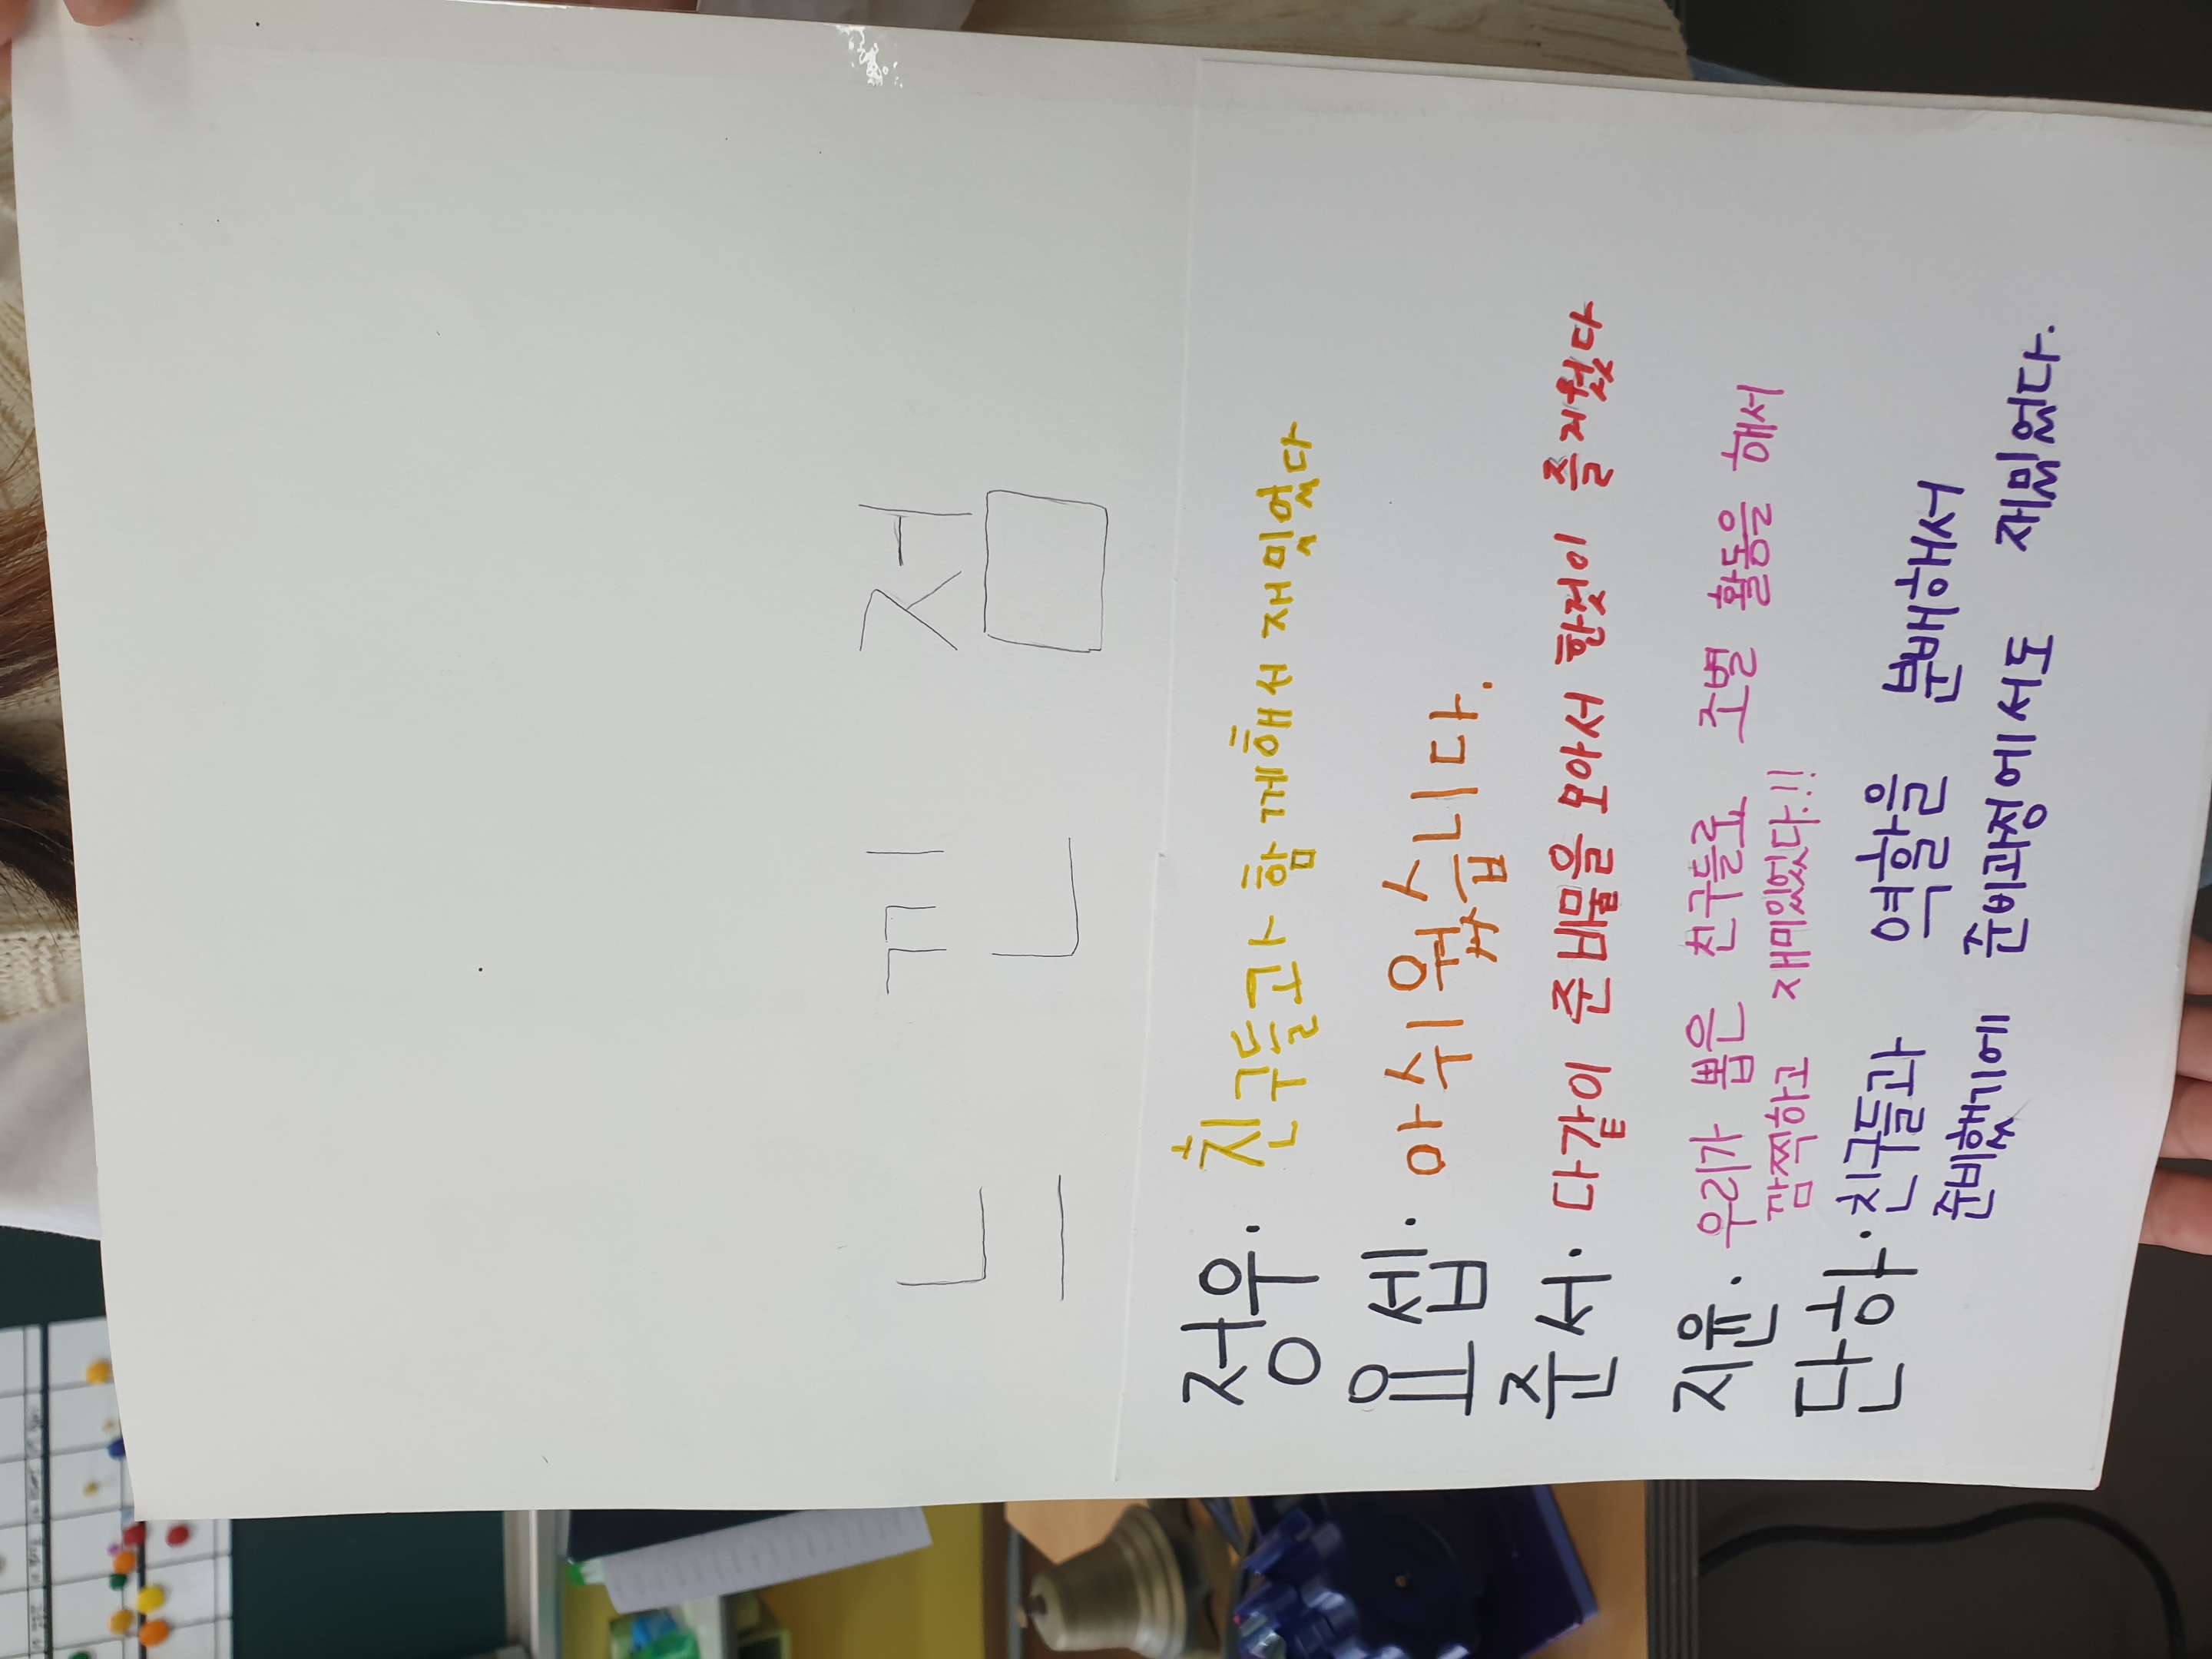 느낀 점
정우. 친구들과 함께해서 재밋었다
요셉. 아쉬웠습니다.
준서. 다같이 준비물을 모아서 한것이 즐거웠다
지윤. 우리가 뽑은 친구들로 조별 활동을 해서
깜찍하고 재미있었다.!!
단하. 친구들과 역할을 분배해서
준비했기에 준비과정에서도 재밌었다.